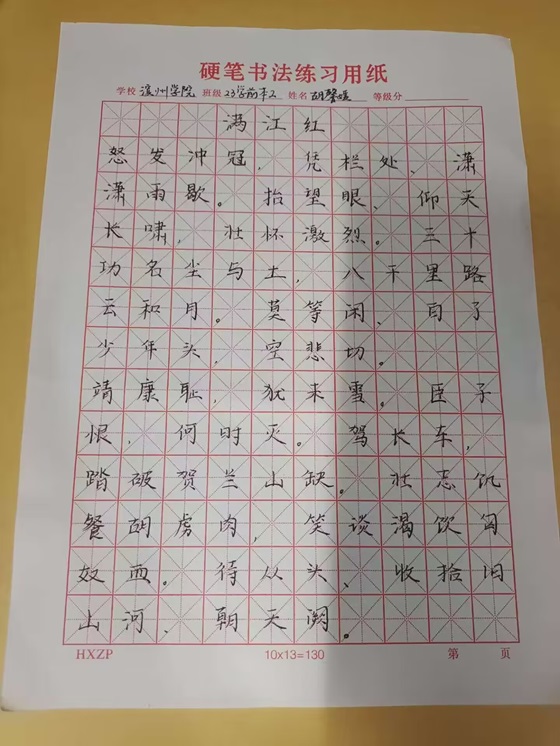 硬笔书法练习用纸
学校 滨州学院 班级 23学前本2 姓名 胡馨媛 等级分
满江红
怒发冲冠，凭栏处、潇
潇雨歇。抬望眼、仰天
长啸，壮怀激烈。三十
功名尘与土，八千里路
云和月。莫等闲、白了
少年头，空悲切。
靖康耻，犹未雪。臣子
恨，何时灭。驾长车，
踏破贺兰山缺。壮志饥
餐胡虏肉，笑谈渴饮匈
奴血。待从头、收拾旧
山河、朝天阙。
HXZP 10x13=130 第 页